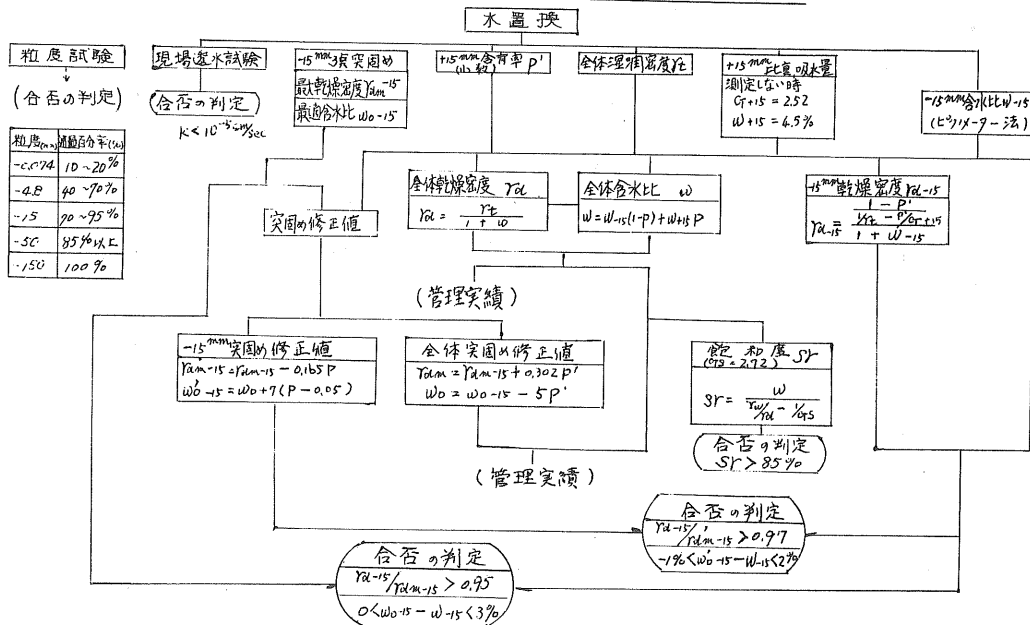 水置換
粒度試験
(合否の判定)
粒度(mm) 通過百分率(%)
-0.074 10~20%
-4.8 40~70%
-15 70~95%
-50 85%以上
-150 100%
現場透水試験
(合否の判定)
K<10⁻⁵cm/sec
-15mm3点突固め
最大乾燥密度γdm-15
最適含水比w0-15
+15mm含有率P'
(小数)
全体湿潤密度γt
+15mm比重,吸水量
測定しない時
G+15 = 2.52
w+15 = 4.5%
-15mm含水比w-15
(ピクノメーター法)
突固め修正値
全体乾燥密度 γd
γd = γt / 1 + w
全体含水比 w
w = w-15(1-P) + w+15 P
-15mm乾燥密度γd-15
γd-15 = 1 - P' / 1/γt - P'/G+15 / 1 + w-15
(管理実績)
-15mm突固め修正値
γ'dm-15 = γdm-15 - 0.165P
w'0-15 = w0 + 7(P - 0.05)
全体突固め修正値
γdm = γdm-15 + 0.302P'
w0 = w0-15 - 5P'
飽和度 Sr
(GS = 2.72)
Sr = w / γw/γd - 1/GS
合否の判定
Sr > 85%
(管理実績)
合否の判定
γd-15/γ'dm-15 > 0.97
-1% < w'0-15 - w-15 < 2%
合否の判定
γd-15/γdm-15 > 0.95
0 < w0-15 - w-15 < 3%